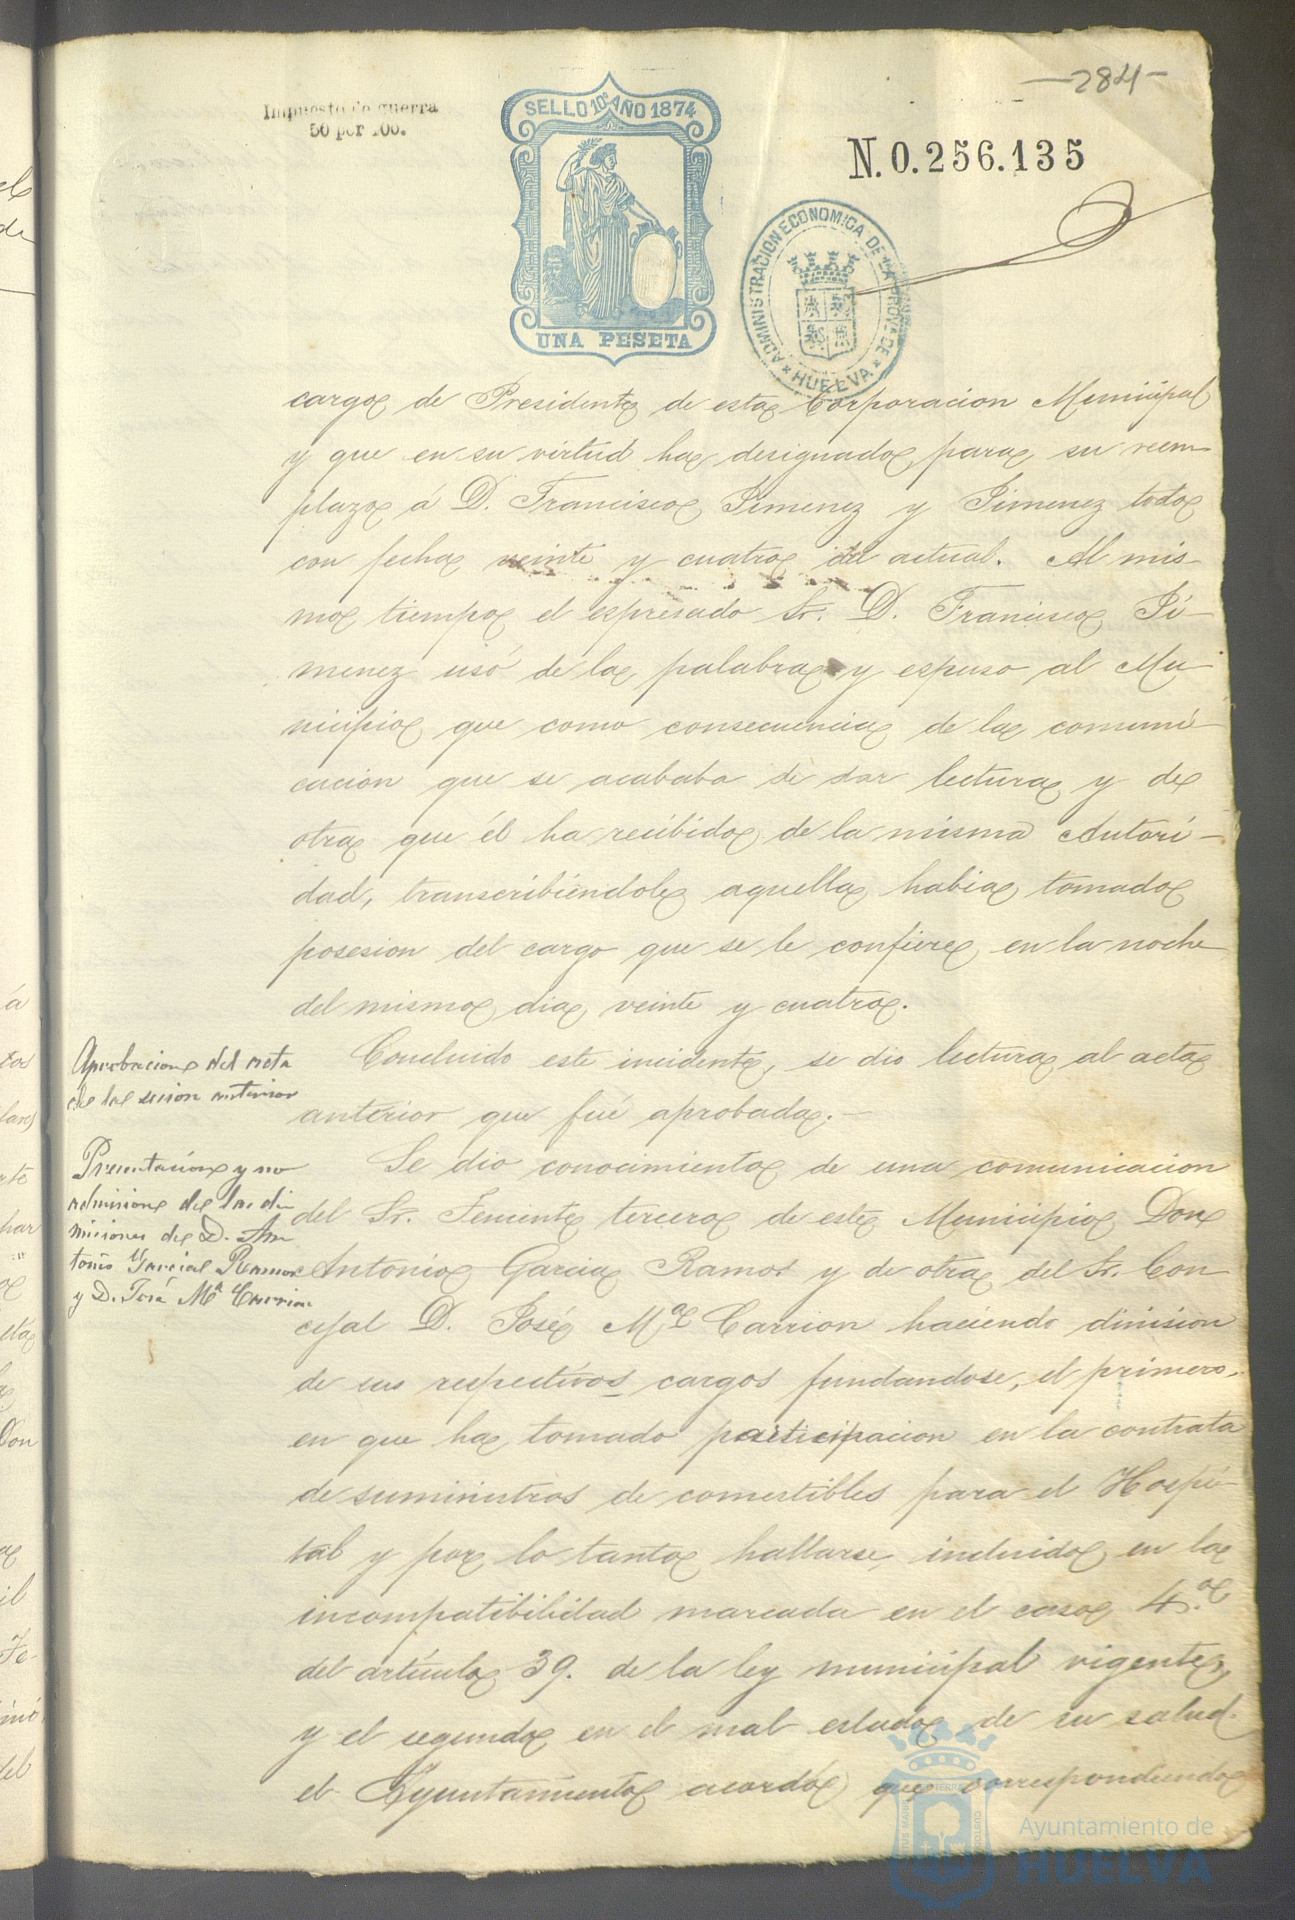 —284—
Impuesto de guerra
50 por 100.
SELLO 10º AÑO 1874
UNA PESETA
N. 0.256.135
ADMINISTRACION ECONOMICA DE LA PROVª DE
* HUELVA *
cargo de Presidente de esta Corporacion Municipal
y que en su virtud ha designado para su reem-
plazo á D. Francisco Jimenez y Jimenez todo
con fecha veinte y cuatro del actual. Al mis-
mo tiempo el espresado Sr. D. Francisco Ji-
menez usó de la palabra y espuso al Mu-
nicipio que como consecuencia de la comuni-
cacion que se acababa de dar lectura y de
otra que él ha recibido de la misma Autori-
dad, transcribiéndole aquella habia tomado
posesion del cargo que se le confiere en la noche
del mismo dia veinte y cuatro.
Aprobacion del acta
de la sesion anterior
Concluido este incidente, se dio lectura al acta
anterior que fué aprobada.—
Presentacion y no
admision de las di
misiones de D. An
tonio Garcia Ramos
y D. José Mª Carrion
Se dio conocimiento de una comunicacion
del Sr. Teniente tercero de este Municipio Don
Antonio Garcia Ramos y de otra del Sr. Con
cejal D. José Mª Carrion haciendo dimision
de sus respectivos cargos fundandose, el primero,
en que ha tomado participacion en la contrata
de suministros de comestibles para el Hospi-
tal y por lo tanto hallarse incluido en la
incompatibilidad marcada en el caso 4.º
del artículo 39. de la ley municipal vigente,
y el segundo en el mal estado de su salud.
el Ayuntamiento acordó que correspondiendo
Ayuntamiento de
HUELVA